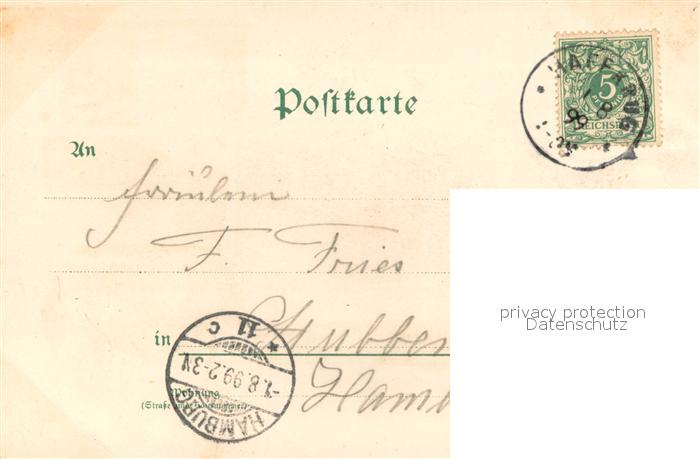 HAFFKRUG
1 8
99
5
REICHSPOST
Postkarte
An
Fräulein
F. Fries
in
Hamb
Wohnung
(Straße und Hausnummer)
* 11 C
-1.8.99.2-3N
HAMBURG
privacy protection
Datenschutz